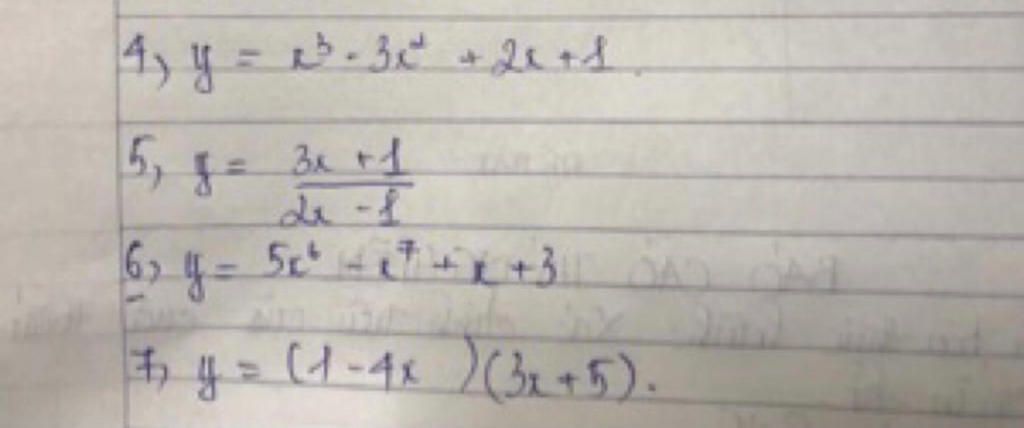 4, y = x³ - 3x² + 2x + 1.
5, y = \frac{3x + 1}{2x - 1}
6, y = 5x⁶ - x⁷ + x + 3
7, y = (1 - 4x )(3x + 5).